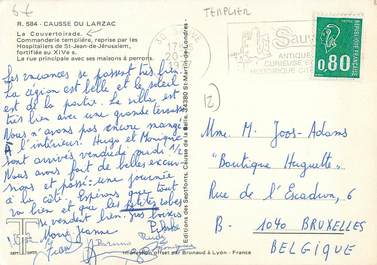 R. 584 - CAUSSE DU LARZAC
La Couvertoirade.
Commanderie templière, reprise par les
Hospitaliers de St-Jean-de-Jérusalem,
fortifiée au XIVe s.
La rue principale avec ses maisons à perrons.
TEMPLIER
RÉPUBLIQUE FRANÇAISE
0,80
12
Les vacances se passent très bien.
La région est belle et le soleil
est de la partie. La villa est
très bien avec une grande terrasse
Nous n'avons pas encore mangé
à l'intérieur. Hugo et Monique
sont arrivés vendredi midi 1/2
Nous avons fait de belles excur
sions et passé une journée
à la côte. Espérons que tout
va bien et que les petites robes
se vendent bien. Gros baisers
Marie Jeanne
Jean
Bruno
Monique
Mme. M. Joos-Adams
"Boutique Huguette"
Rue de l'Escadron, 6
B - 1040 BRUXELLES
BELGIQUE
Editions des Septfonts, Causse de la Selle, 34380 St-Martin-de-Londres
Impression offset par Brunaud à Lyon - France